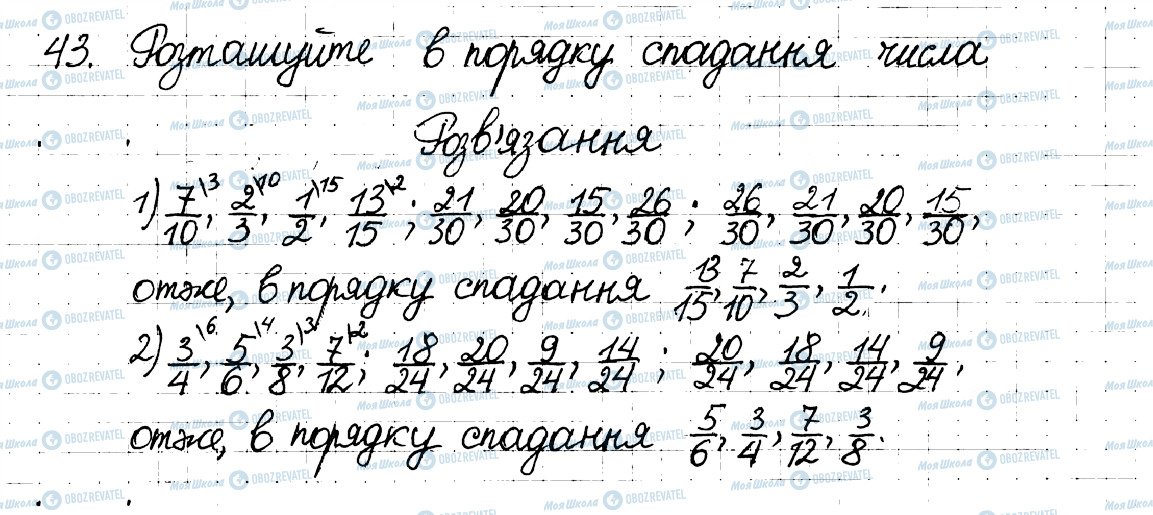 43. Розташуйте в порядку спадання числа
Розв'язання
1) 7/10\3, 2/3\10, 1/2\15, 13/15\2; 21/30, 20/30, 15/30, 26/30; 26/30, 21/30, 20/30, 15/30,
отже, в порядку спадання 13/15, 7/10, 2/3, 1/2.
2) 3/4\6, 5/6\4, 3/8\3, 7/12\2; 18/24, 20/24, 9/24, 14/24; 20/24, 18/24, 14/24, 9/24,
отже, в порядку спадання 5/6, 3/4, 7/12, 3/8.
Моя Школа OBOZREVATEL